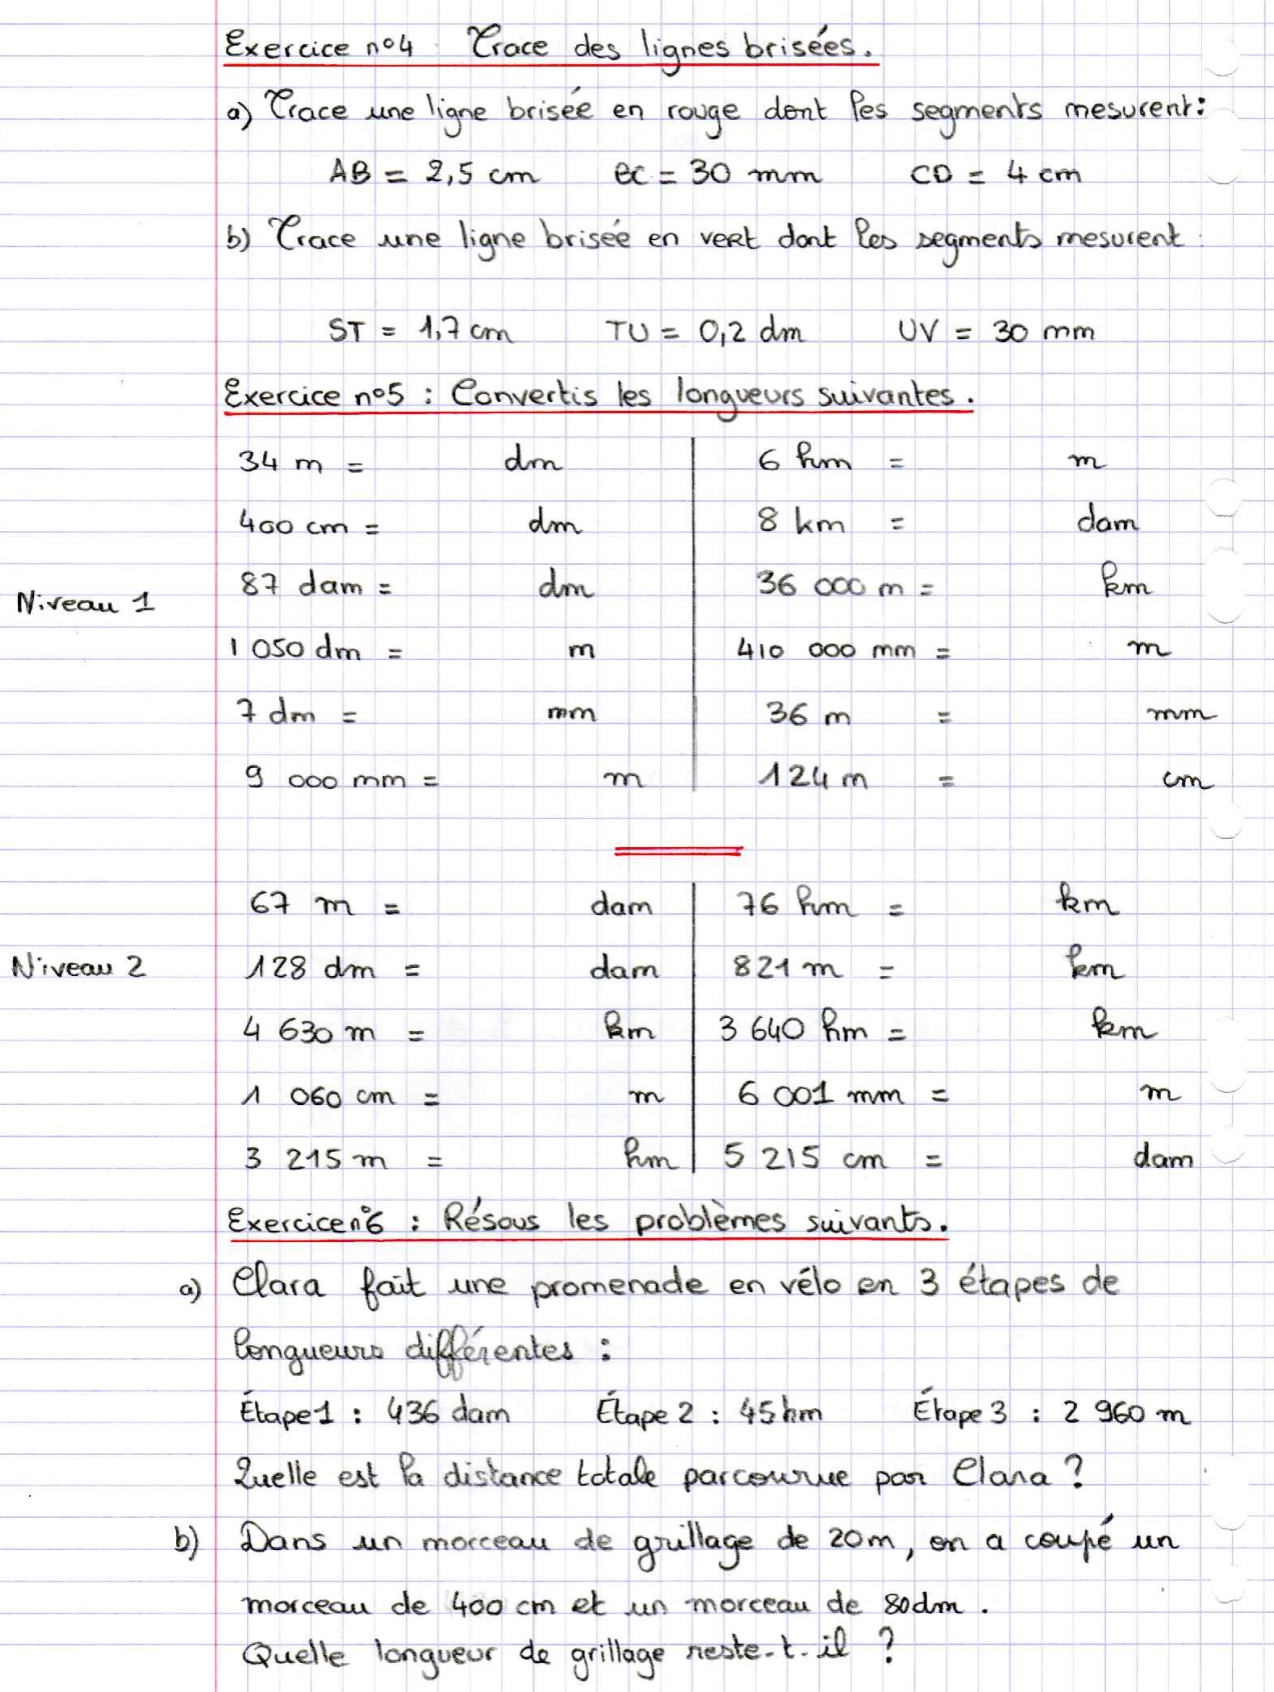 Exercice n°4 Trace des lignes brisées.
a) Trace une ligne brisée en rouge dont les segments mesurent :
AB = 2,5 cm BC = 30 mm CD = 4 cm
b) Trace une ligne brisée en vert dont les segments mesurent :
ST = 1,7 cm TU = 0,2 dm UV = 30 mm
Exercice n°5 : Convertis les longueurs suivantes.
34 m = dm 6 hm = m
400 cm = dm 8 km = dam
Niveau 1 87 dam = dm 36 000 m = km
1 050 dm = m 410 000 mm = m
7 dm = mm 36 m = mm
9 000 mm = m 124 m = cm
67 m = dam 76 hm = km
Niveau 2 128 dm = dam 821 m = km
4 630 m = km 3 640 hm = km
1 060 cm = m 6 001 mm = m
3 215 m = hm 5 215 cm = dam
Exercice n°6 : Résous les problèmes suivants.
a) Clara fait une promenade en vélo en 3 étapes de
longueurs différentes :
Étape 1 : 436 dam Étape 2 : 45 hm Étape 3 : 2 960 m
Quelle est la distance totale parcourue par Clara ?
b) Dans un morceau de grillage de 20 m, on a coupé un
morceau de 400 cm et un morceau de 80 dm.
Quelle longueur de grillage reste-t-il ?